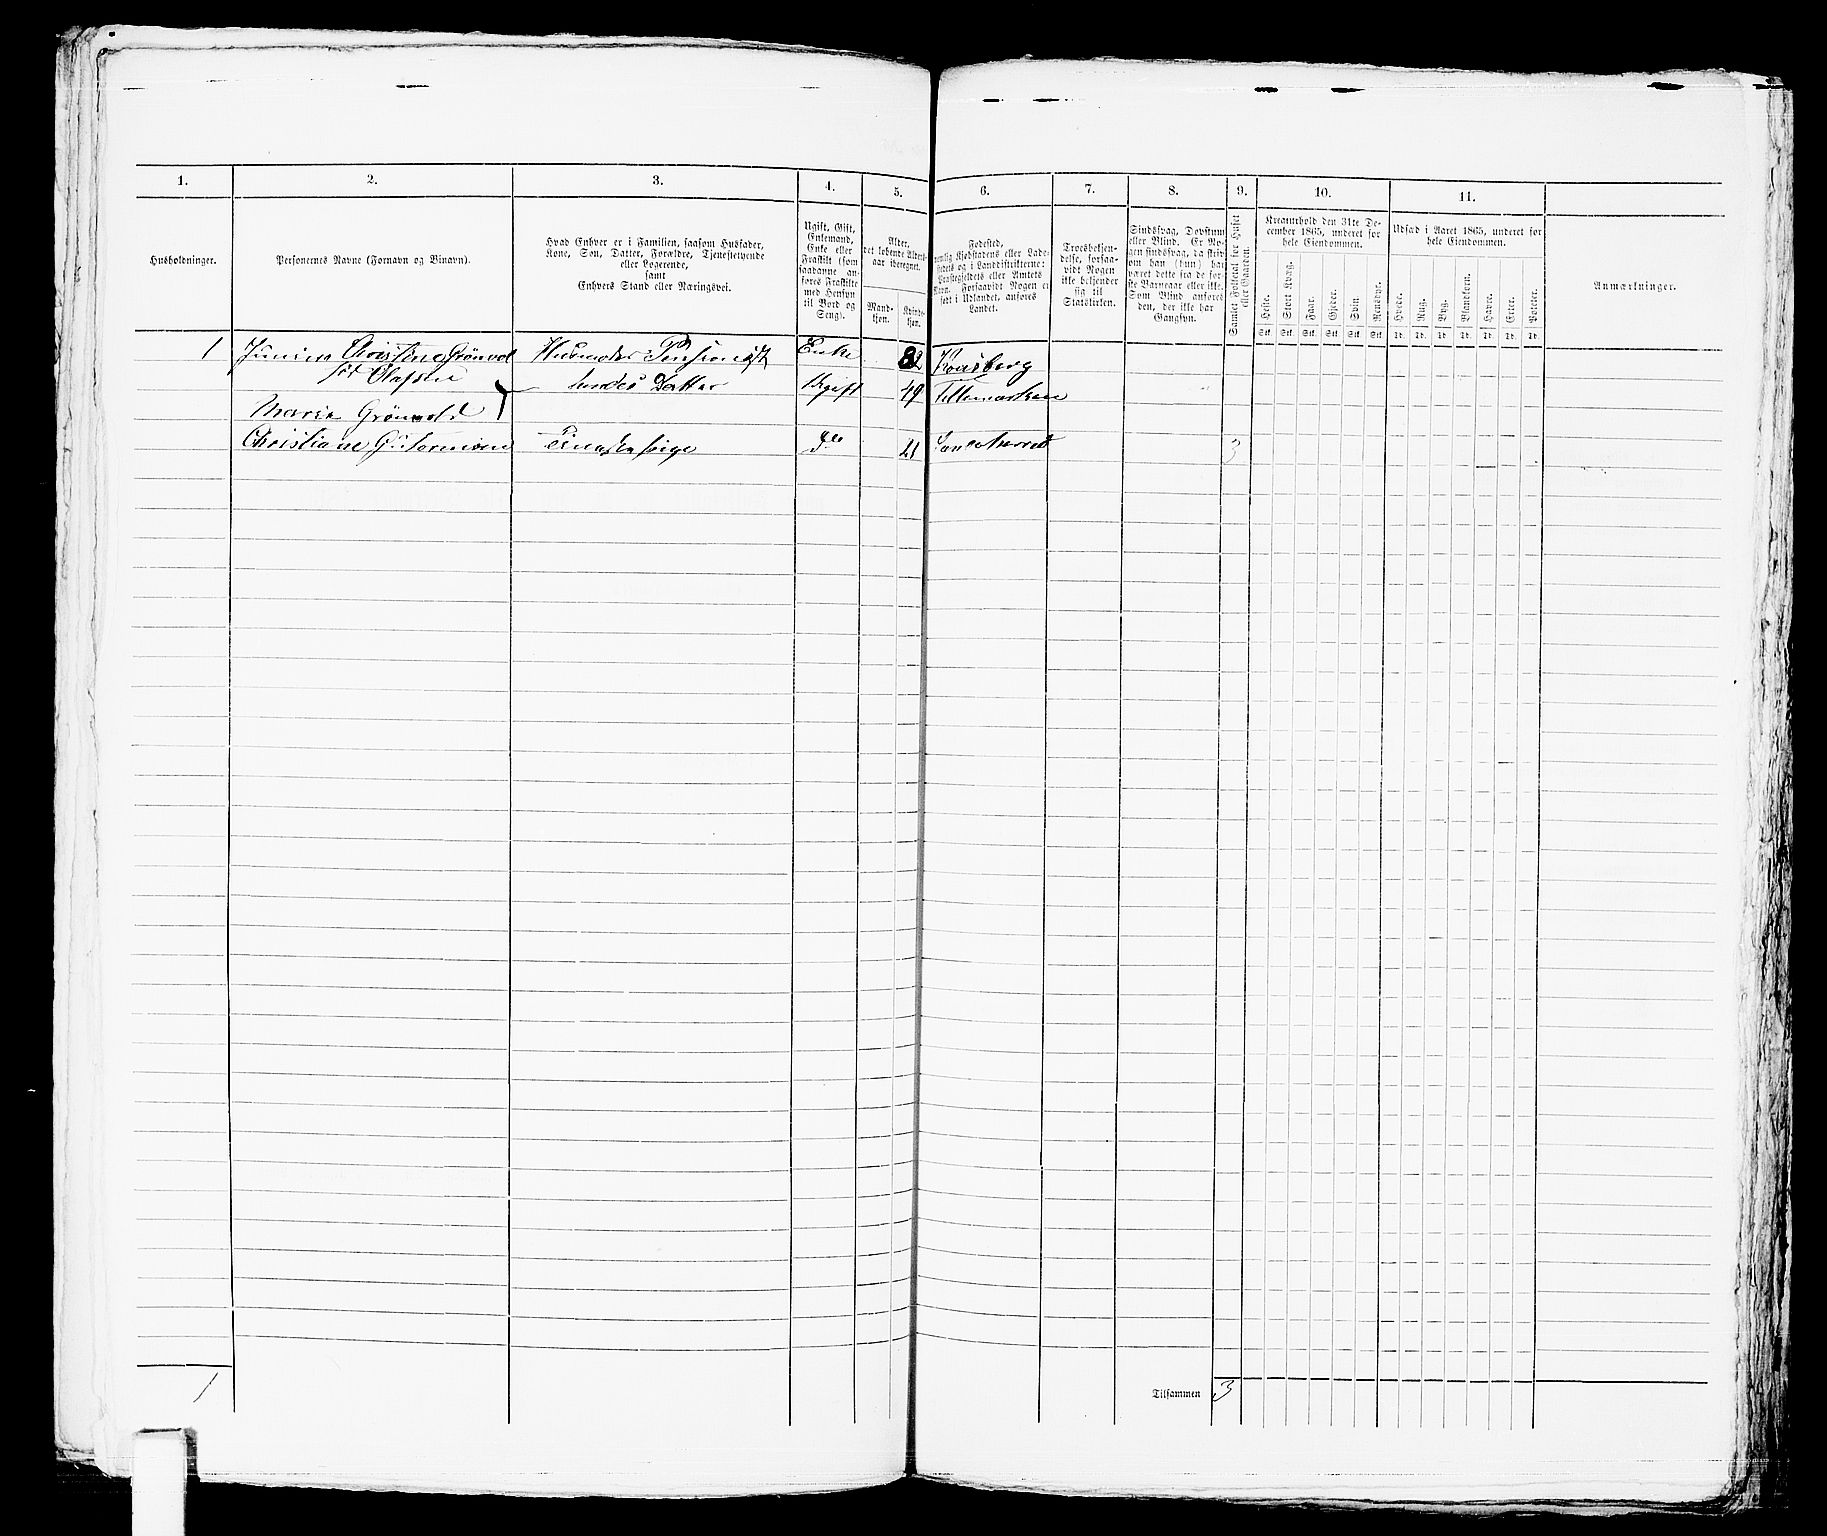 1. 2. 3. 4. 5. 6. 7. 8. 9. 10. 11.
Husholdninger.
Personernes Navne (Fornavn og Binavn).
Hvad Enhver er i Familien, saasom Husfader,
Kone, Søn, Datter, Forældre, Tjenestetyende
eller Logerende,
samt
Enhvers Stand eller Næringsvei.
Ugift, Gift,
Enkemand,
Enke eller
Fraskilt (som
saadanne an-
føres Fraskilte
med Hensyn
til Bord og
Seng).
Alder,
det løbende Alders-
aar iberegnet.
Mand-
kjøn.
Kvinde-
kjøn.
Fødested,
nemlig Kjøbstadens eller Lade-
stedets og i Landdistrikterne:
Præstegjeldets eller Amtets
Navn. Forsaavidt Nogen er
født i Udlandet, anføres
Landet.
Troesbekjen-
delse, forsaa-
vidt Nogen
ikke bekjender
sig til
Statskirken.
Sindssvag, Døvstum
eller Blind. Er No-
gen sindssvag, da skriv
om han (hun) har
været dette fra de før-
ste Barneaar eller ikke.
Som Blind anføres
den, der ikke har
Gangsyn.
Samlet Folketal for Huset
eller Gaarden.
Kreaturhold den 31te De-
cember 1865, underet for
hele Eiendommen.
Heste. Stort Kvæg. Faar. Gjeder. Svin. Rensdyr.
Stk. Stk. Stk. Stk. Stk. Stk.
Udsæd i Aaret 1865, underet for
hele Eiendommen.
Hvede. Rug. Byg. Blandkorn. Havre. Erter. Poteter.
Td. Td. Td. Td. Td. Td. Td.
Anmærkninger.
1 Christine Grönvol Husmoder Pensionist Enke 82 Kongsberg
föd Olafsen
Marie Grönvold hendes Datter Ugift 49 Tellemarken
Christiane Tjenestepige do 21 3
1 Tilsammen 3